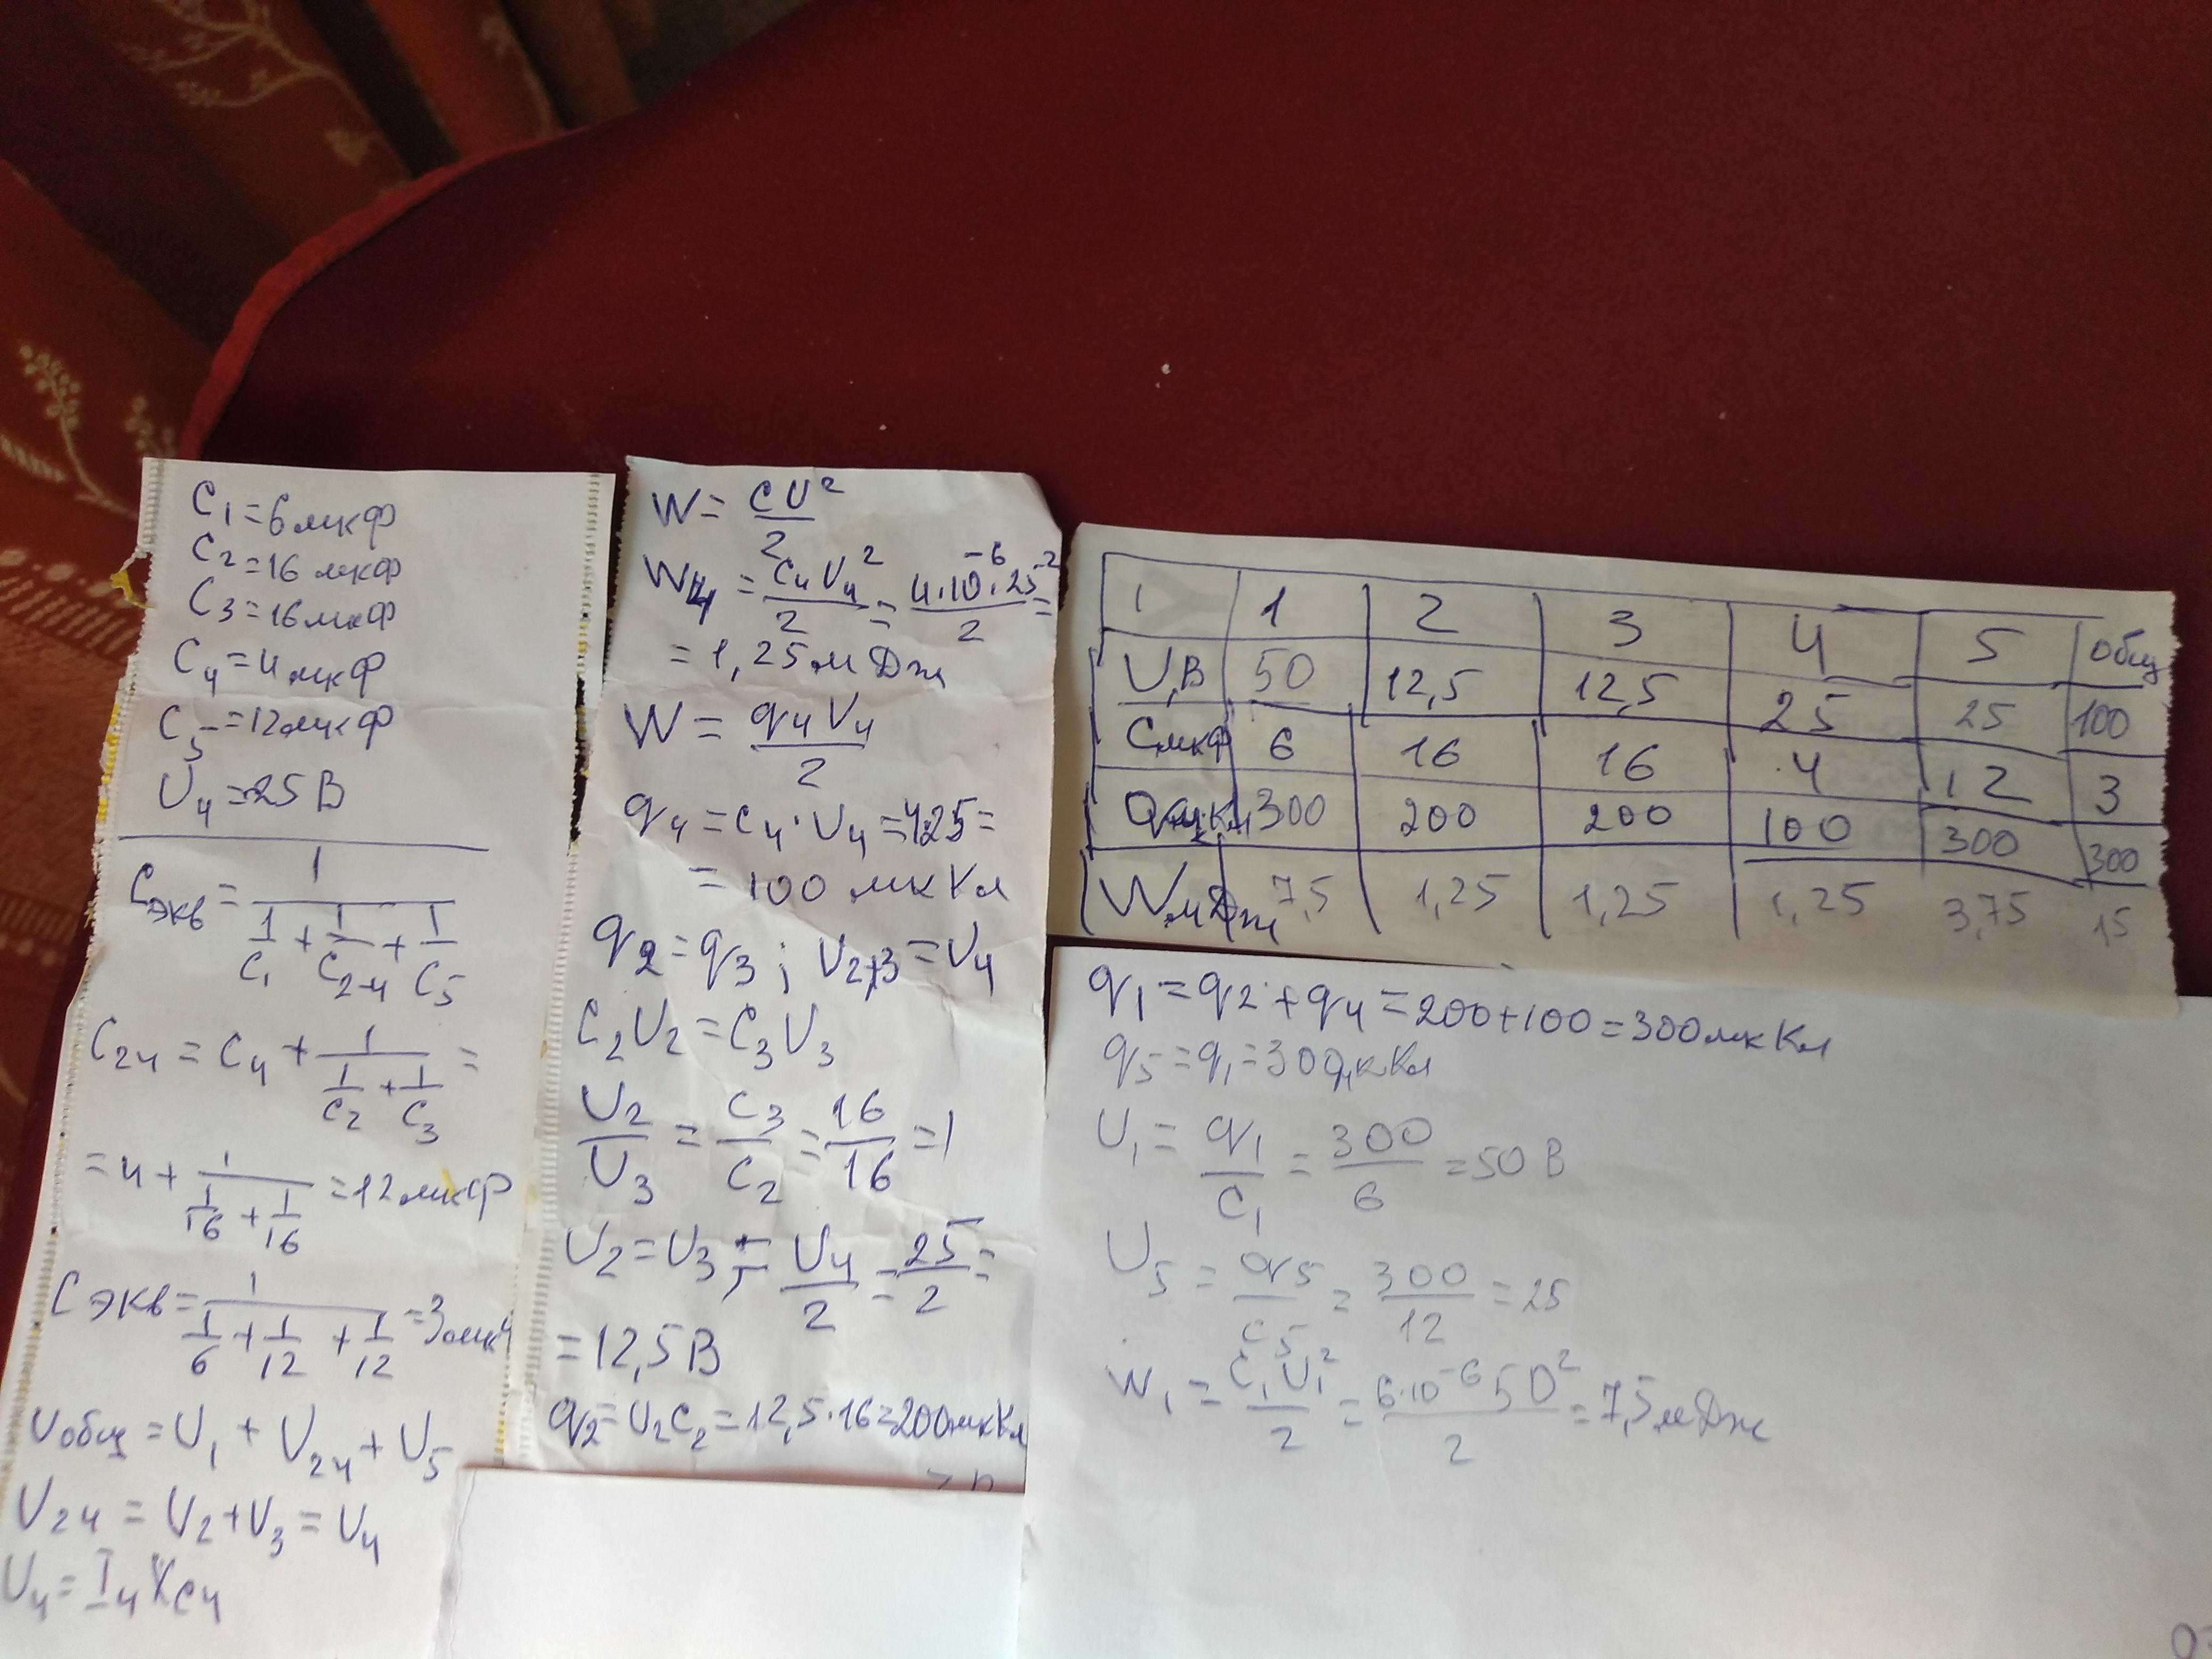 C1=6мкф
C2=16 мкф
C3=16мкф
C4=4мкф
C5=12мкф
U4=25В
Cэкв = 1 / (1/C1 + 1/C2-4 + 1/C5)
C24 = C4 + 1 / (1/C2 + 1/C3) =
= 4 + 1 / (1/16 + 1/16) = 12мкф
Cэкв = 1 / (1/6 + 1/12 + 1/12) = 3мкф
Uобщ = U1 + U24 + U5
U24 = U2 + U3 = U4
U4 = I4 Xc4
W = CU²/2
W4 = C4U4²/2 = 4·10⁻⁶·25²/2 =
= 1,25 мДж
W = q4U4/2
q4 = C4·U4 = 4·25 =
= 100 мкКл
q2 = q3; U2+3 = U4
C2U2 = C3U3
U2/U3 = C3/C2 = 16/16 = 1
U2 = U3 = U4/2 = 25/2 =
= 12,5В
q2 = U2C2 = 12,5·16 = 200мкКл
1 2 3 4 5 Общ
U,В 50 12,5 12,5 25 25 100
Cмкф 6 16 16 4 12 3
Qмкл 300 200 200 100 300 300
WмДж 7,5 1,25 1,25 1,25 3,75 15
q1 = q2 + q4 = 200+100 = 300мкКл
q5 = q1 = 300мкКл
U1 = q1/C1 = 300/6 = 50 В
U5 = q5/C5 = 300/12 = 25
W1 = C1U1²/2 = 6·10⁻⁶ 50²/2 = 7,5мДж